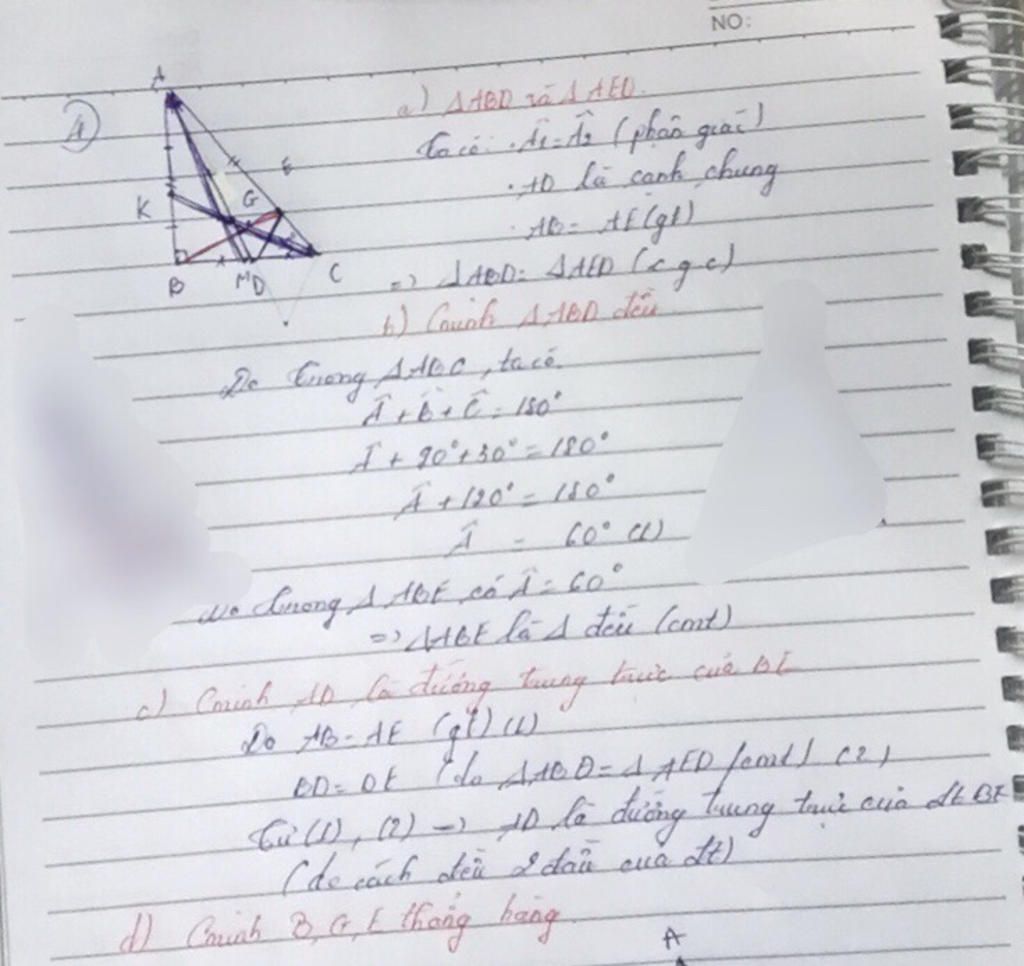 NO:
1
A
K
E
G
B
M D
C
a) ΔABD và ΔAED.
Ta có: · Â1 = Â2 (phân giác)
· AD là cạnh chung
· AB = AE (gt)
=> ΔABD = ΔAED (c g c)
b) Cminh ΔABD đều
Do trong ΔABC, ta có
Â + B̂ + Ĉ = 180°
Â + 90° + 30° = 180°
Â + 120° = 180°
Â = 60° (1)
trong Δ ABE có Â = 60°
=> ΔABE là Δ đều (cmt)
c) Cminh AD là đường trung trực của BE
Do AB = AE (gt) (1)
BD = DE (do ΔABD = ΔAED (cmt) (2)
Từ (1), (2) => AD là đường trung trực của đt BE
(do cách đều 2 đầu của đt)
d) Cminh B, G, E thẳng hàng.
A